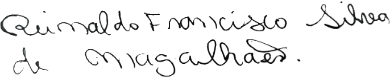 Reinaldo Francisco Silva
de Magalhães.